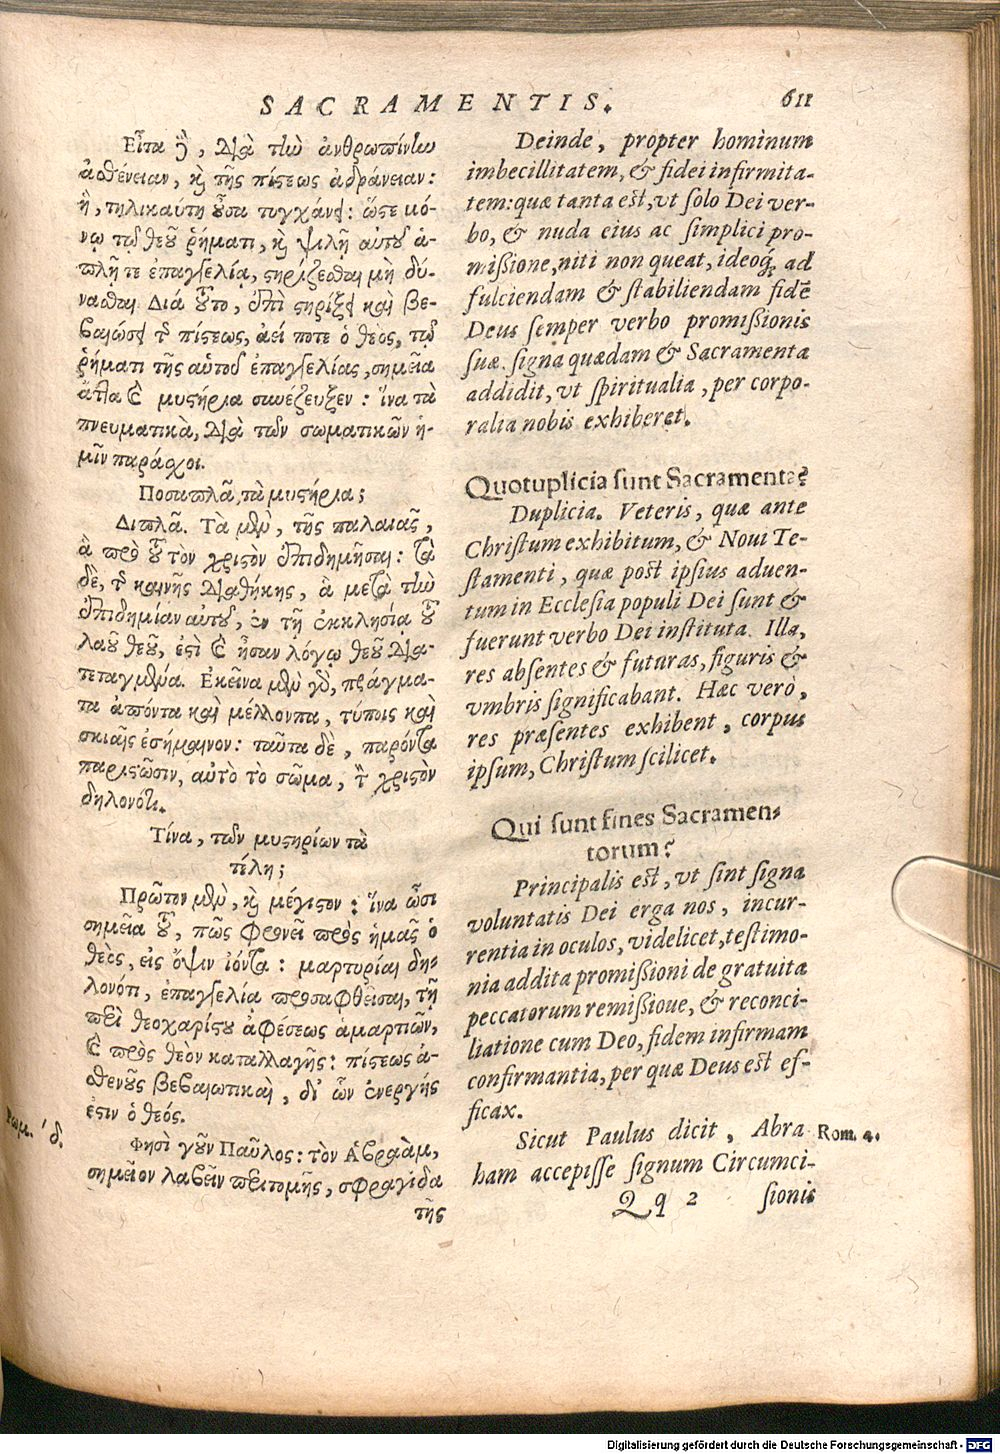 SACRAMENTIS. 611
Εἶτα δὲ, διὰ τὴν ἀνθρωπίνην
ἀσθένειαν, καὶ τῆς πίστεως ἀδράνειαν:
ἣ, τηλικαύτη οὖσα τυγχάνει: ὥστε μό-
νῳ τῷ θεοῦ ῥήματι, καὶ ψιλῇ αὐτοῦ ἁ-
πλῇ τε ἐπαγγελίᾳ, στηρίζεσθαι μὴ δύ-
νασθαι. Διά τοῦτο, ἐπὶ στηρίξει καὶ βε-
βαιώσει τῆς πίστεως, ἀεί ποτε ὁ θεὸς, τῷ
ῥήματι τῆς αὑτοῦ ἐπαγγελίας, σημεῖα
ἄττα καὶ μυστήρια συνέζευξεν: ἵνα τὰ
πνευματικὰ, διὰ τῶν σωματικῶν ἡ-
μῖν παράσχοι.
Ποσαπλᾶ, τὰ μυστήρια;
Διπλᾶ. Τὰ μὲν, τῆς παλαιᾶς,
ἃ πρὸ τοῦ τὸν χριστὸν ἐπιδημῆσαι: τὰ
δὲ, τῆς καινῆς διαθήκης, ἃ μετὰ τὴν
ἐπιδημίαν αὐτοῦ, ἐν τῇ ἐκκλησίᾳ τοῦ
λαοῦ θεοῦ, ἐστὶ καὶ ἦσαν λόγῳ θεοῦ δια-
τεταγμένα. Ἐκεῖνα μὲν γὰρ, πράγμα-
τα ἀπόντα καὶ μέλλοντα, τύποις καὶ
σκιαῖς ἐσήμαινον: ταῦτα δὲ, παρόντα
παριστῶσιν, αὐτὸ τὸ σῶμα, τὸν χριστὸν
δηλονότι.
Τίνα, τῶν μυστηρίων τὰ
τέλη;
Πρῶτον μὲν, καὶ μέγιστον: ἵνα ὦσι
σημεῖα τοῦ, πῶς φρονεῖ πρὸς ἡμᾶς ὁ
θεὸς, εἰς ὄψιν ἰόντα: μαρτυρίαι δη-
λονότι, ἐπαγγελία προσαφθεῖσαι, τῇ
περὶ θεοχαρίστου ἀφέσεως ἁμαρτιῶν,
καὶ πρὸς θεὸν καταλλαγῆς: πίστεως ἀ-
σθενοῦς βεβαιωτικαὶ, δι' ὧν ἐνεργής
ἐστιν ὁ θεός.
Ῥωμ. δ.
Φησὶ γοῦν Παῦλος: τὸν Ἀβραὰμ,
σημεῖον λαβεῖν περιτομῆς, σφραγίδα
τῆς
Deinde, propter hominum
imbecillitatem, & fidei infirmita-
tem: quæ tanta est, vt solo Dei ver-
bo, & nuda eius ac simplici pro-
missione, niti non queat, ideoq́; ad
fulciendam & stabiliendam fidē
Deus semper verbo promissionis
suæ signa quædam & Sacramenta
addidit, vt spiritualia, per corpo-
ralia nobis exhiberet.
Quotuplicia sunt Sacramenta?
Duplicia. Veteris, quæ ante
Christum exhibitum, & Noui Te-
stamenti, quæ post ipsius aduen-
tum in Ecclesia populi Dei sunt &
fuerunt verbo Dei instituta. Illa,
res absentes & futuras, figuris &
vmbris significabant. Hæc verò,
res præsentes exhibent, corpus
ipsum, Christum scilicet.
Qui sunt fines Sacramen-
torum?
Principalis est, vt sint signa
voluntatis Dei erga nos, incur-
rentia in oculos, videlicet, testimo-
nia addita promissioni de gratuita
peccatorum remissioue, & reconci-
liatione cum Deo, fidem infirmam
confirmantia, per quæ Deus est ef-
ficax.
Sicut Paulus dicit, Abra
Rom. 4.
ham accepisse signum Circumci-
Qq 2 sionis
Digitalisierung gefördert durch die Deutsche Forschungsgemeinschaft - DFG